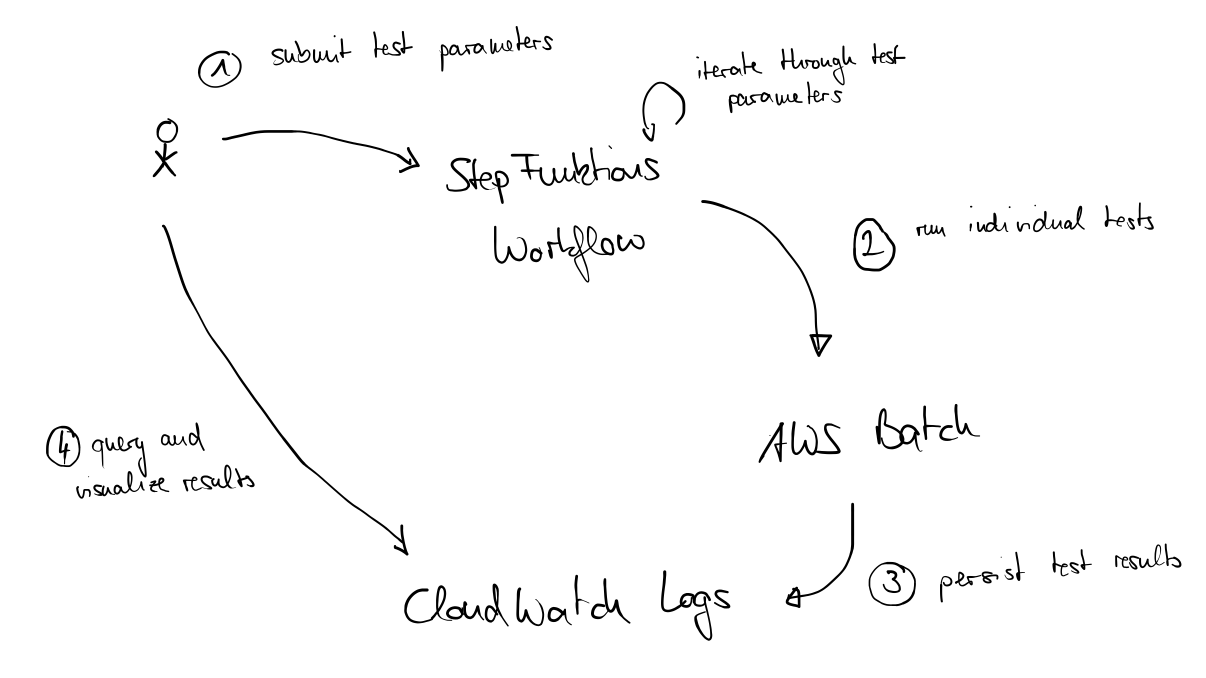 1 submit test parameters
iterate through test
parameters
StepFunktions
Workflow
2 run individual tests
AWS Batch
4 query and
visualize results
3 persist test results
CloudWatch Logs